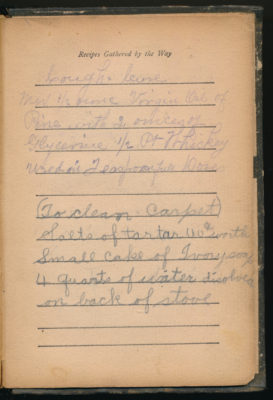 Recipes Gathered by the Way
Cough Cure
Mix 1/2 ounce Virgin Oil of
Pine with 2 ounces of
Glycerine 1/2 Pt Whiskey
Teaspoonful Dose
(To clean Carpet)
Salts of tartar 10¢ worth
Small cake of Ivory soap
4 quarts of water disolve
on back of stove